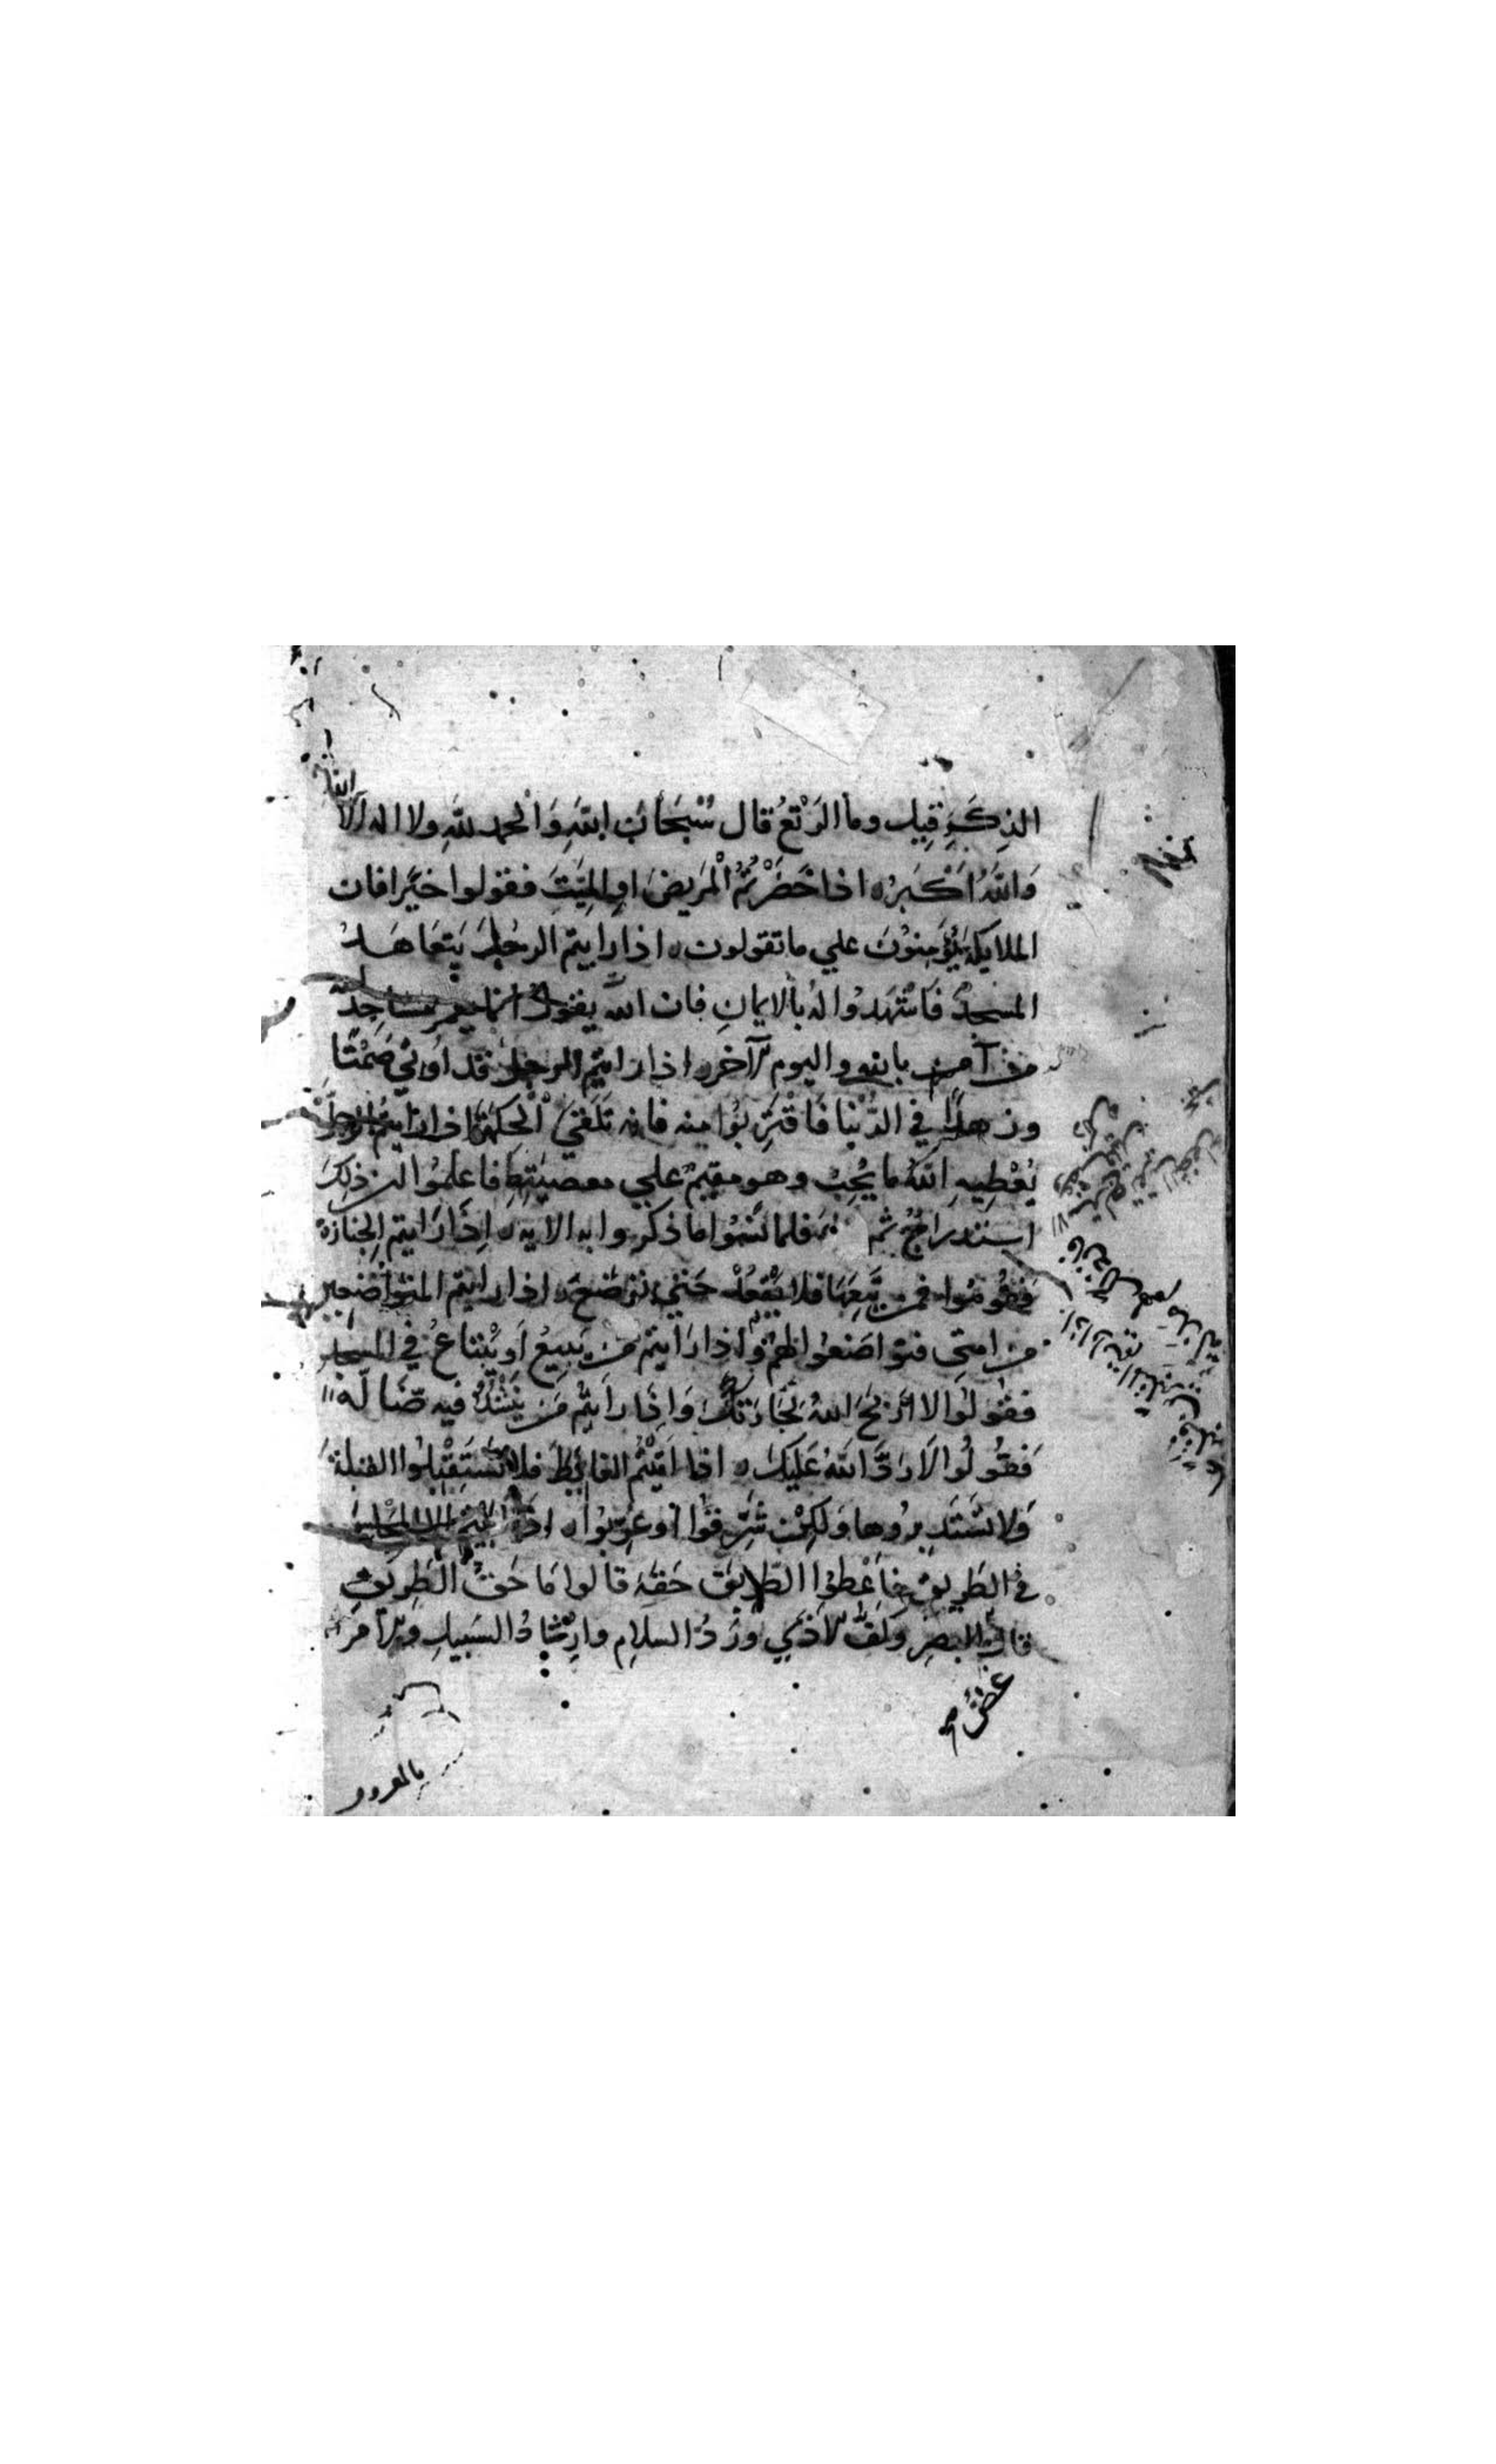 الذِكَرِ قِيل وما الرَتْعُ قال سُبْحَانَ اللهِ وَالحمد للهِ ولا اله الا
الله
وَاللهُ اَكْبَرُ اذا حَضَرْتُمُ الْمَريضَ اوِ المَيِّتَ فقولوا خيًرا فان
الملايكة يُؤَمِنوُنَ علي ما تقولون اذا رايتم الرجُلَ يَتعَاهَدُ
المسجدَ فَاشْهَدُوا لهُ بالايمانِ فان الله يقول انما يعمر مساجد الله
من آمن بالله واليوم الآخر اذا رايتم الرجل قد اُوتيَ صَمْتًا
وزهدًا في الدُنْيا فَاقْتَرِبُوا مِنه فانه تَلَقيَ الْحِكمَة اذا رايتم الرجل
يُعْطِيهِ اللهُ ما يُحِبُ وهو مقيمٌ علي معصيَتِهِ فاعلمُوا ان ذلِكَ
استدراجٌ ثم فلما نَسُوا ما ذكروا به الايه اِذَا رَايتم الِجنازة
فقُومُوا فمن تَبِعَهَا فلا يَقْعُدْ حَتي توضَعَ اذا رايتم المتواضعين
من امتي فتواضعُوا لهمْ واذا رَايتم مَن يَبيعُ اَو يْبتاعُ في المسجد
فقولُوا لا اَرْبَحَ اللهُ تِجَارَتكَ وَاِذَا رَايتُم مَن يَنْشُدُ فيه ضَالّه
فقُولُوا لَا رَدَّ اللهُ عَلَيكَ اذا اَتَيْتُم الغائِطَ فلا تَسْتَقْبِلوُا القبلةَ
وَلا تَسْتَدبِرُوها وَلكِنْ شَرِّقُوا اَو غرِّبوُا اذَا اَبَيْتم الا المَجْلسَ
في الطَرِيق فاَعْطوُا الطريق حَقهَ قَالوا مَا حَقُ الطَرِيقِ
قال البصَرِ وَكَفُّ الاَذَي وَرَدُ السلامِ واِرْشادُ السَبيلِ والاَمرَ
غضُّ
بالمعروف